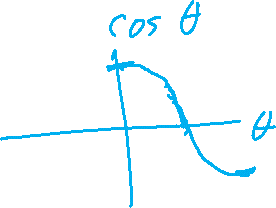 cos θ
θ